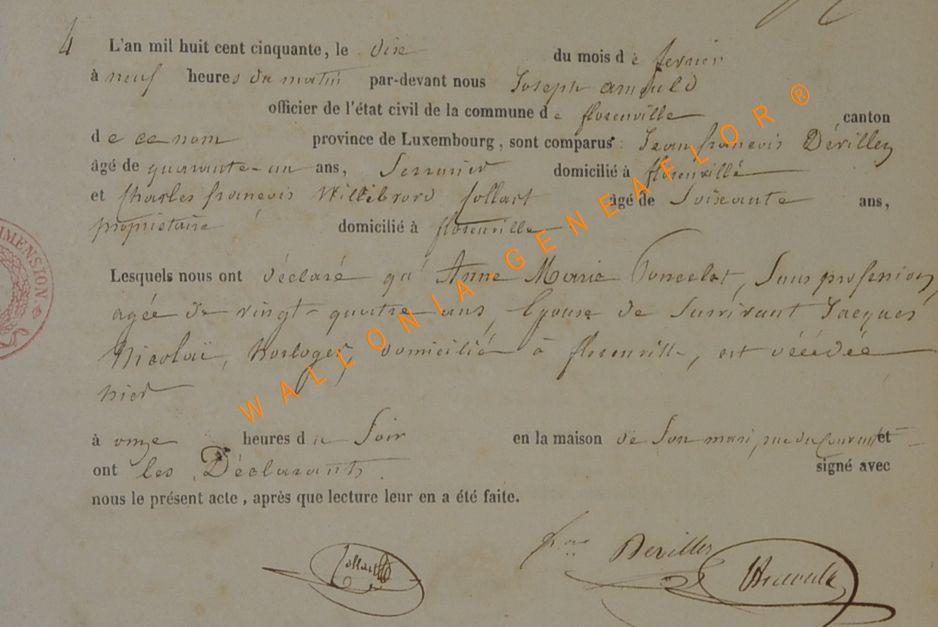 4
L'an mil huit cent cinquante, le dixe du mois de fevrier
à neuf heures du matin par-devant nous Joseph Arnould
officier de l'état civil de la commune de florenville canton
de ce nom province de Luxembourg, sont comparus : Jean françois Dévillez
âgé de quarante-un ans, Serrurier domicilié à florenville
et Charles françois Willibrord Collart âgé de Soixante ans,
propriétaire domicilié à florenville
Lesquels nous ont déclaré qu'Anne Marie Poncelet, Sans profession,
agée de vingt-quatre ans, Epouse de Survivant Jacques
Nicolaï, horloger, domicilié à florenville, est décédée
hier
à onze heures du Soir en la maison de Son mari, rue du et
ont les Déclarants signé avec
nous le présent acte, après que lecture leur en a été faite.
Collart Devillez Arnould
WALLONIA GENEAFLOR ®
DIMENSION